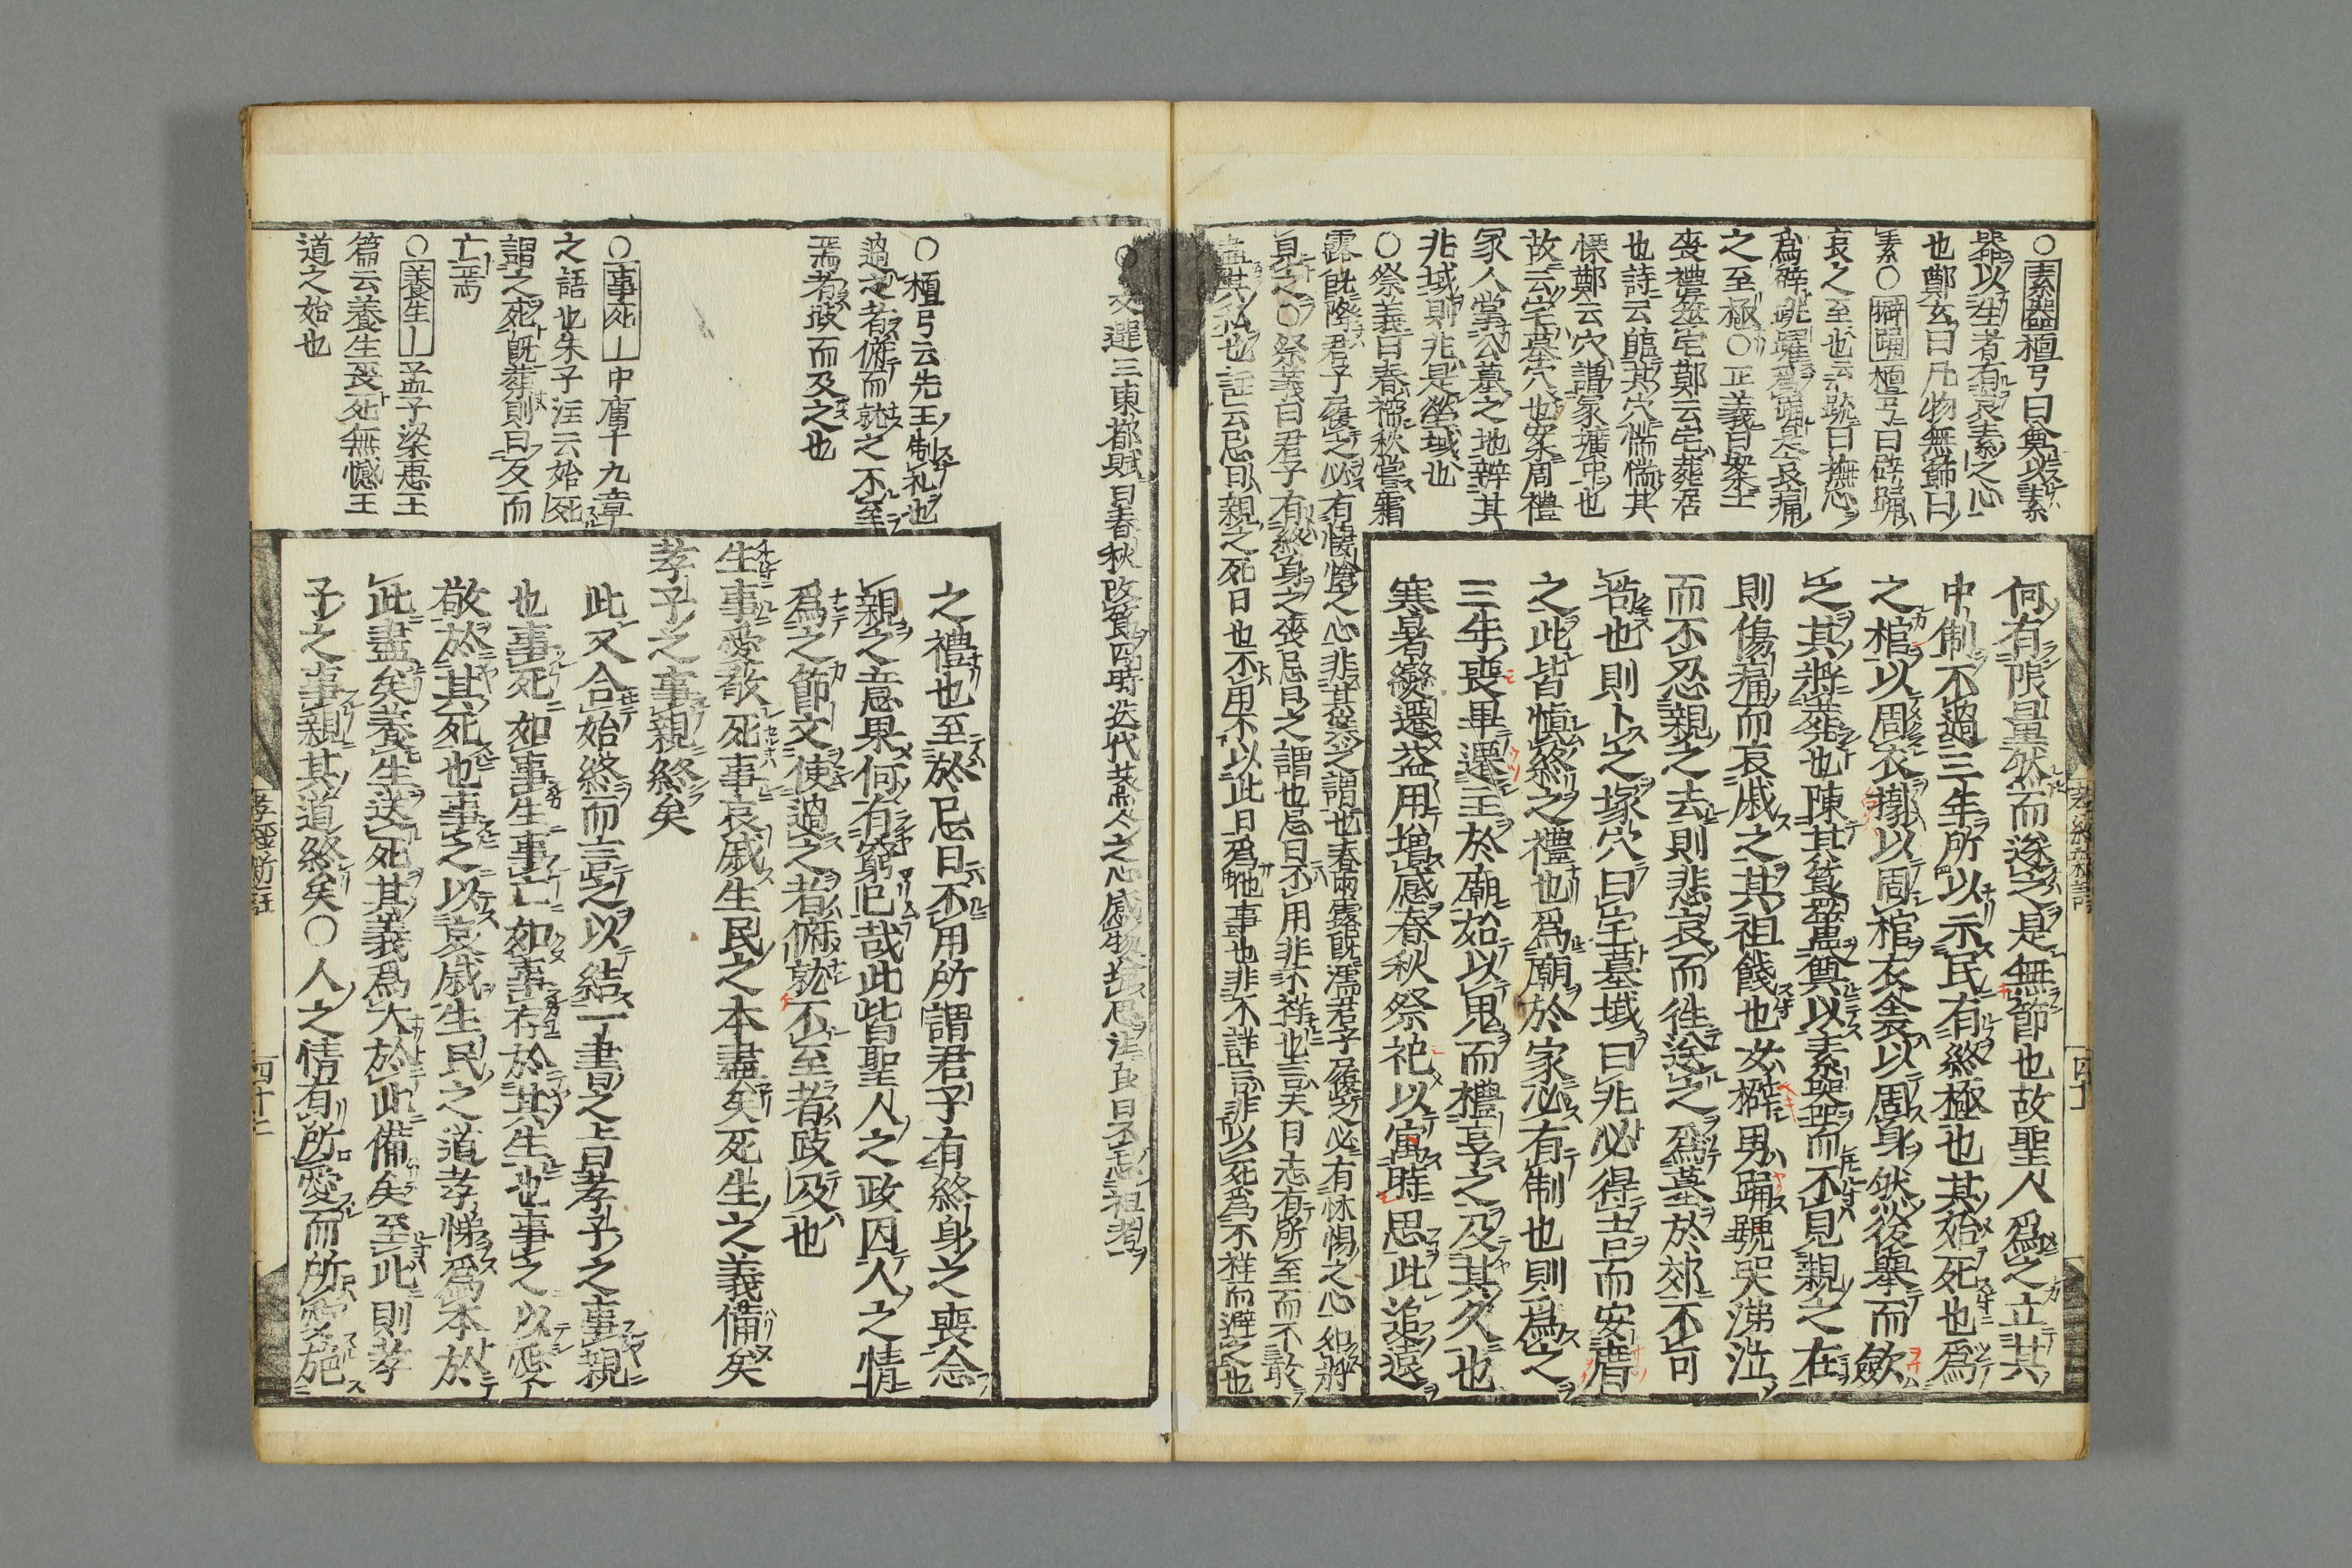 ○素器檀弓曰奠以素
器以生者有哀素之心
也鄭玄曰凡物無飾曰
素○擗踊檀弓曰辟踊
哀之至也云疏曰撫心
為辟跳躍為踊是哀痛
之至極○正義曰案士
喪禮筮宅鄭云宅葬居
也詩云臨其穴惴惴其
慄鄭云穴謂冢壙中也
故云宅墓穴也案周禮
冢人掌公墓之地辨其
兆域則兆是塋域也
○祭義曰春禘秋嘗霜
露既降君子履之必有悽愴之心非其寒之謂也春雨露既濡君子履之必有怵惕之心如將
見之○祭義曰君子有終身之喪忌日之謂也忌日不用非不祥也言夫日志有所至而不敢
盡其私也註云忌日親之死日也不用不以此日為他事也非不祥言非以死為不祥而避之也
何有限量然而遂之是無節也故聖人爲之立其
中制不過三年所以示民有終極也其始死也爲
之棺以周衣槨以周棺衣衾以周身然後舉而斂
之其將葬也陳其簠簋奠以素器而不見親之在
則傷痛而哀慼之其祖餞也女擗男踊號哭涕泣
而不忍親之去則悲哀而徃送之爲墓於郊不可
苟也則卜之塚穴曰宅墓域曰兆必得吉而安厝
之此皆愼終之禮也爲廟於家必有制也則爲之
三年喪畢遷主於廟始以鬼而禮享之及其久也
寒暑變遷益用增感春秋祭祀以寓時思此追遠
孝經
四十一
文選三東都賦曰春秋改節四時迭代蒸人之心感物増思
○檀弓云先王制礼也
過之者俯而就之不至
焉者跂而及之也
○事死｜中庸十九章
之語也朱子注云始死
謂之死既葬則曰反而
亡焉
○養生｜孟子梁惠王
篇云養生喪死無憾王
道之始也
之禮也至於忌日不用所謂君子有終身之喪念
親之意果何有窮已哉此皆聖人之政因人之情
爲之節文使過之者俯就不至者跂及也
生事愛敬死事哀慼生民之本盡矣死生之義備矣
孝子之事親終矣
此又合始終而言之以結一書之旨孝子之事親
也事死如事生事亡如事存於其生也事之以愛
敬於其死也事之以哀慼生民之道孝悌爲本於
此盡矣養生送死其義爲大於此備矣至此則孝
子之事親其道終矣○人之情有所愛而所愛施
孝經
四十二